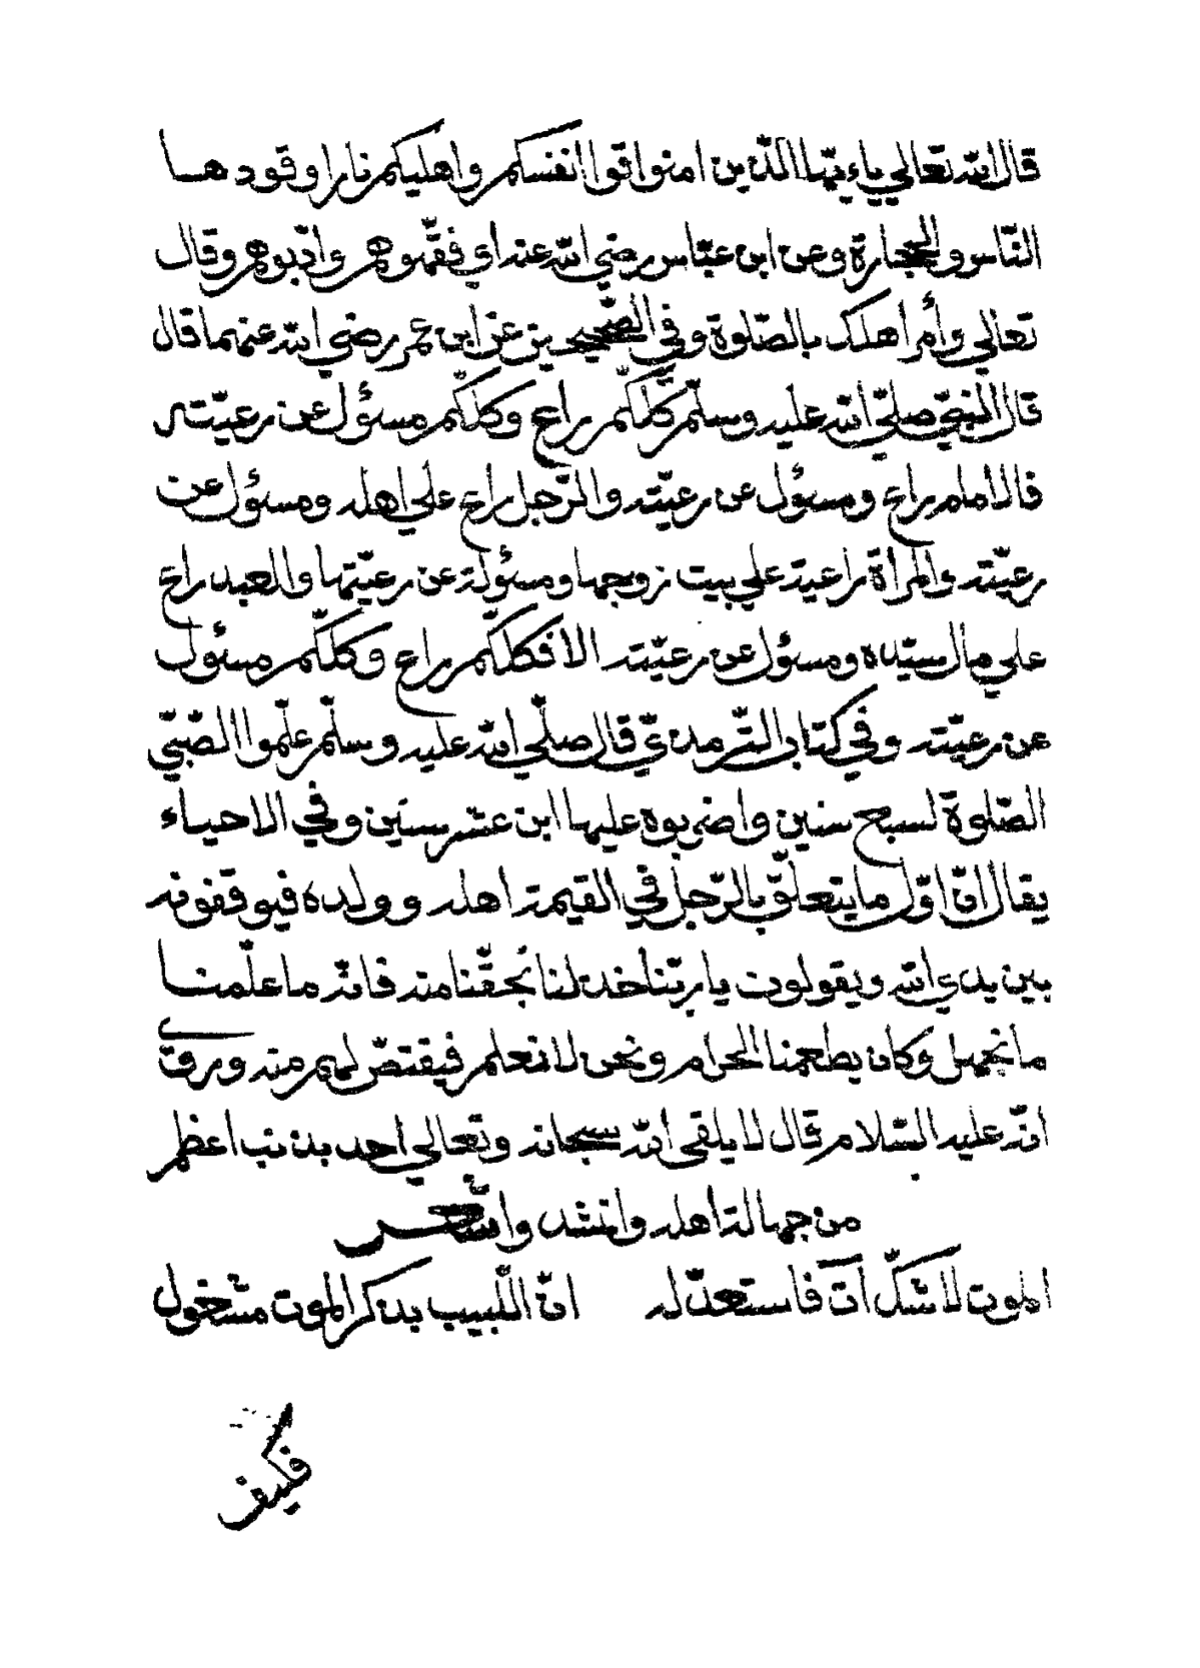 قال الله تعالي ياءيّها الّذين امنوا قوا انفسكم واهليكم نارا وقودها
النّاس والحجارة وعن ابن عبّاس رضي الله عنه اي فقّهوهم وادّبوهم وقال
تعالي وأمر اهلك بالصّلوة وفي الصّحيحين عن ابن عمر رضي الله عنهما قال
قال النّبيّ صلّي الله عليه وسلّم كلّكم راع وكلّكم مسئول عن رعيّته
فالامام راع ومسئول عن رعيّته والرّجل راع علي اهله ومسئول عن
رعيّته والمرأة راعية علي بيت زوجها ومسئولة عن رعيّتها والعبد راع
علي مال سيّده ومسئول عن رعيّته الا فكلّكم راع وكلّكم مسئول
عن رعيّته وفي كتاب التّرمذيّ قال صلّي الله عليه وسلّم علّموا الصّبيّ
الصّلوة لسبع سنين واضربوه عليها ابن عشر سنين وفي الاحياء
يقال انّ اوّل ما يتعلّق بالرّجل في القيمة اهله وولده فيوقفونه
بين يدي الله ويقولون يا ربّنا خذ لنا بحقّنا منه فانّه ما علّمنا
ما نجهل وكان يطعمنا الحرام ونحن لا نعلم فيقتصّ لهم منه وروي
انّه عليه السّلام قال لا يلقي الله سبحانه وتعالي احد بذنب اعظم
من جهالة اهله وانشد
الموت لا شكّ آت فاستعدّ له انّ اللّبيب بذكر الموت مشغول
فكيف